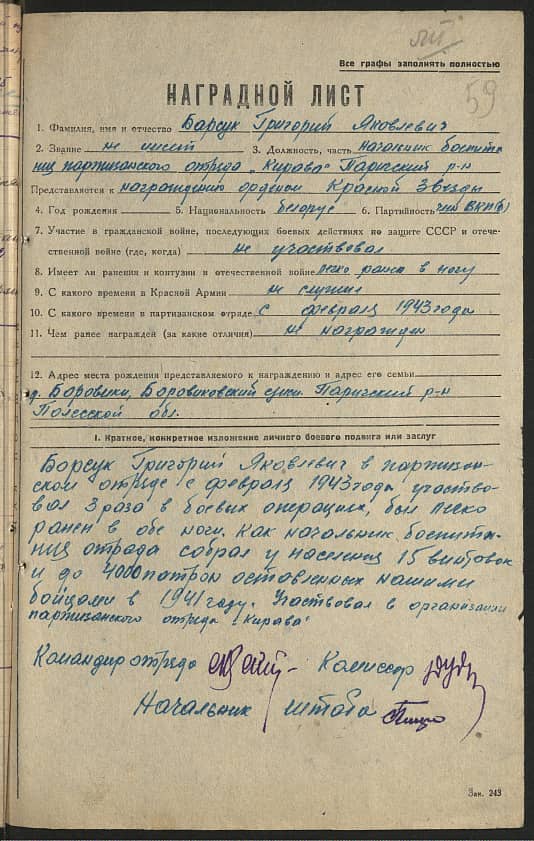 Все графы заполнять полностью
59
НАГРАДНОЙ ЛИСТ
1. Фамилия, имя и отчество Барсук Григорий Яковлевич
2. Звание не имеет 3. Должность, часть начальник боепита-
ния партизанского отряда „Кирава" Паричский р-н
Представляется к награждению орденом Красной Звезды
4. Год рождения 5. Национальность белорус 6. Партийность член ВКП(б)
7. Участие в гражданской войне, последующих боевых действиях по защите СССР и отече-
ственной войне (где, когда) не участвовал
8. Имеет ли ранения и контузии в отечественной войне легко ранен в ногу
9. С какого времени в Красной Армии не служил
10. С какого времени в партизанском отряде с февраля 1943 года
11. Чем ранее награжден (за какие отличия) не награжден
12. Адрес места рождения представляемого к награждению и адрес его семьи
д. Боровики, Боровиковский Паричский р-н
Полесской обл.
I. Краткое, конкретное изложение личного боевого подвига или заслуг
Барсук Григорий Яковлевич в партизан-
ском отряде с февраля 1943 года участво-
вал 3 раза в боевых операциях, был легко
ранен в обе ноги. Как начальник боепита-
ния отряда собрал у населения 15 винтовок
и до 4000 патрон оставленных нашими
бойцами в 1941 году. Участвовал в организации
партизанского отряда „Кирава"
Командир отряда Комиссар
Начальник штаба
Зак. 243